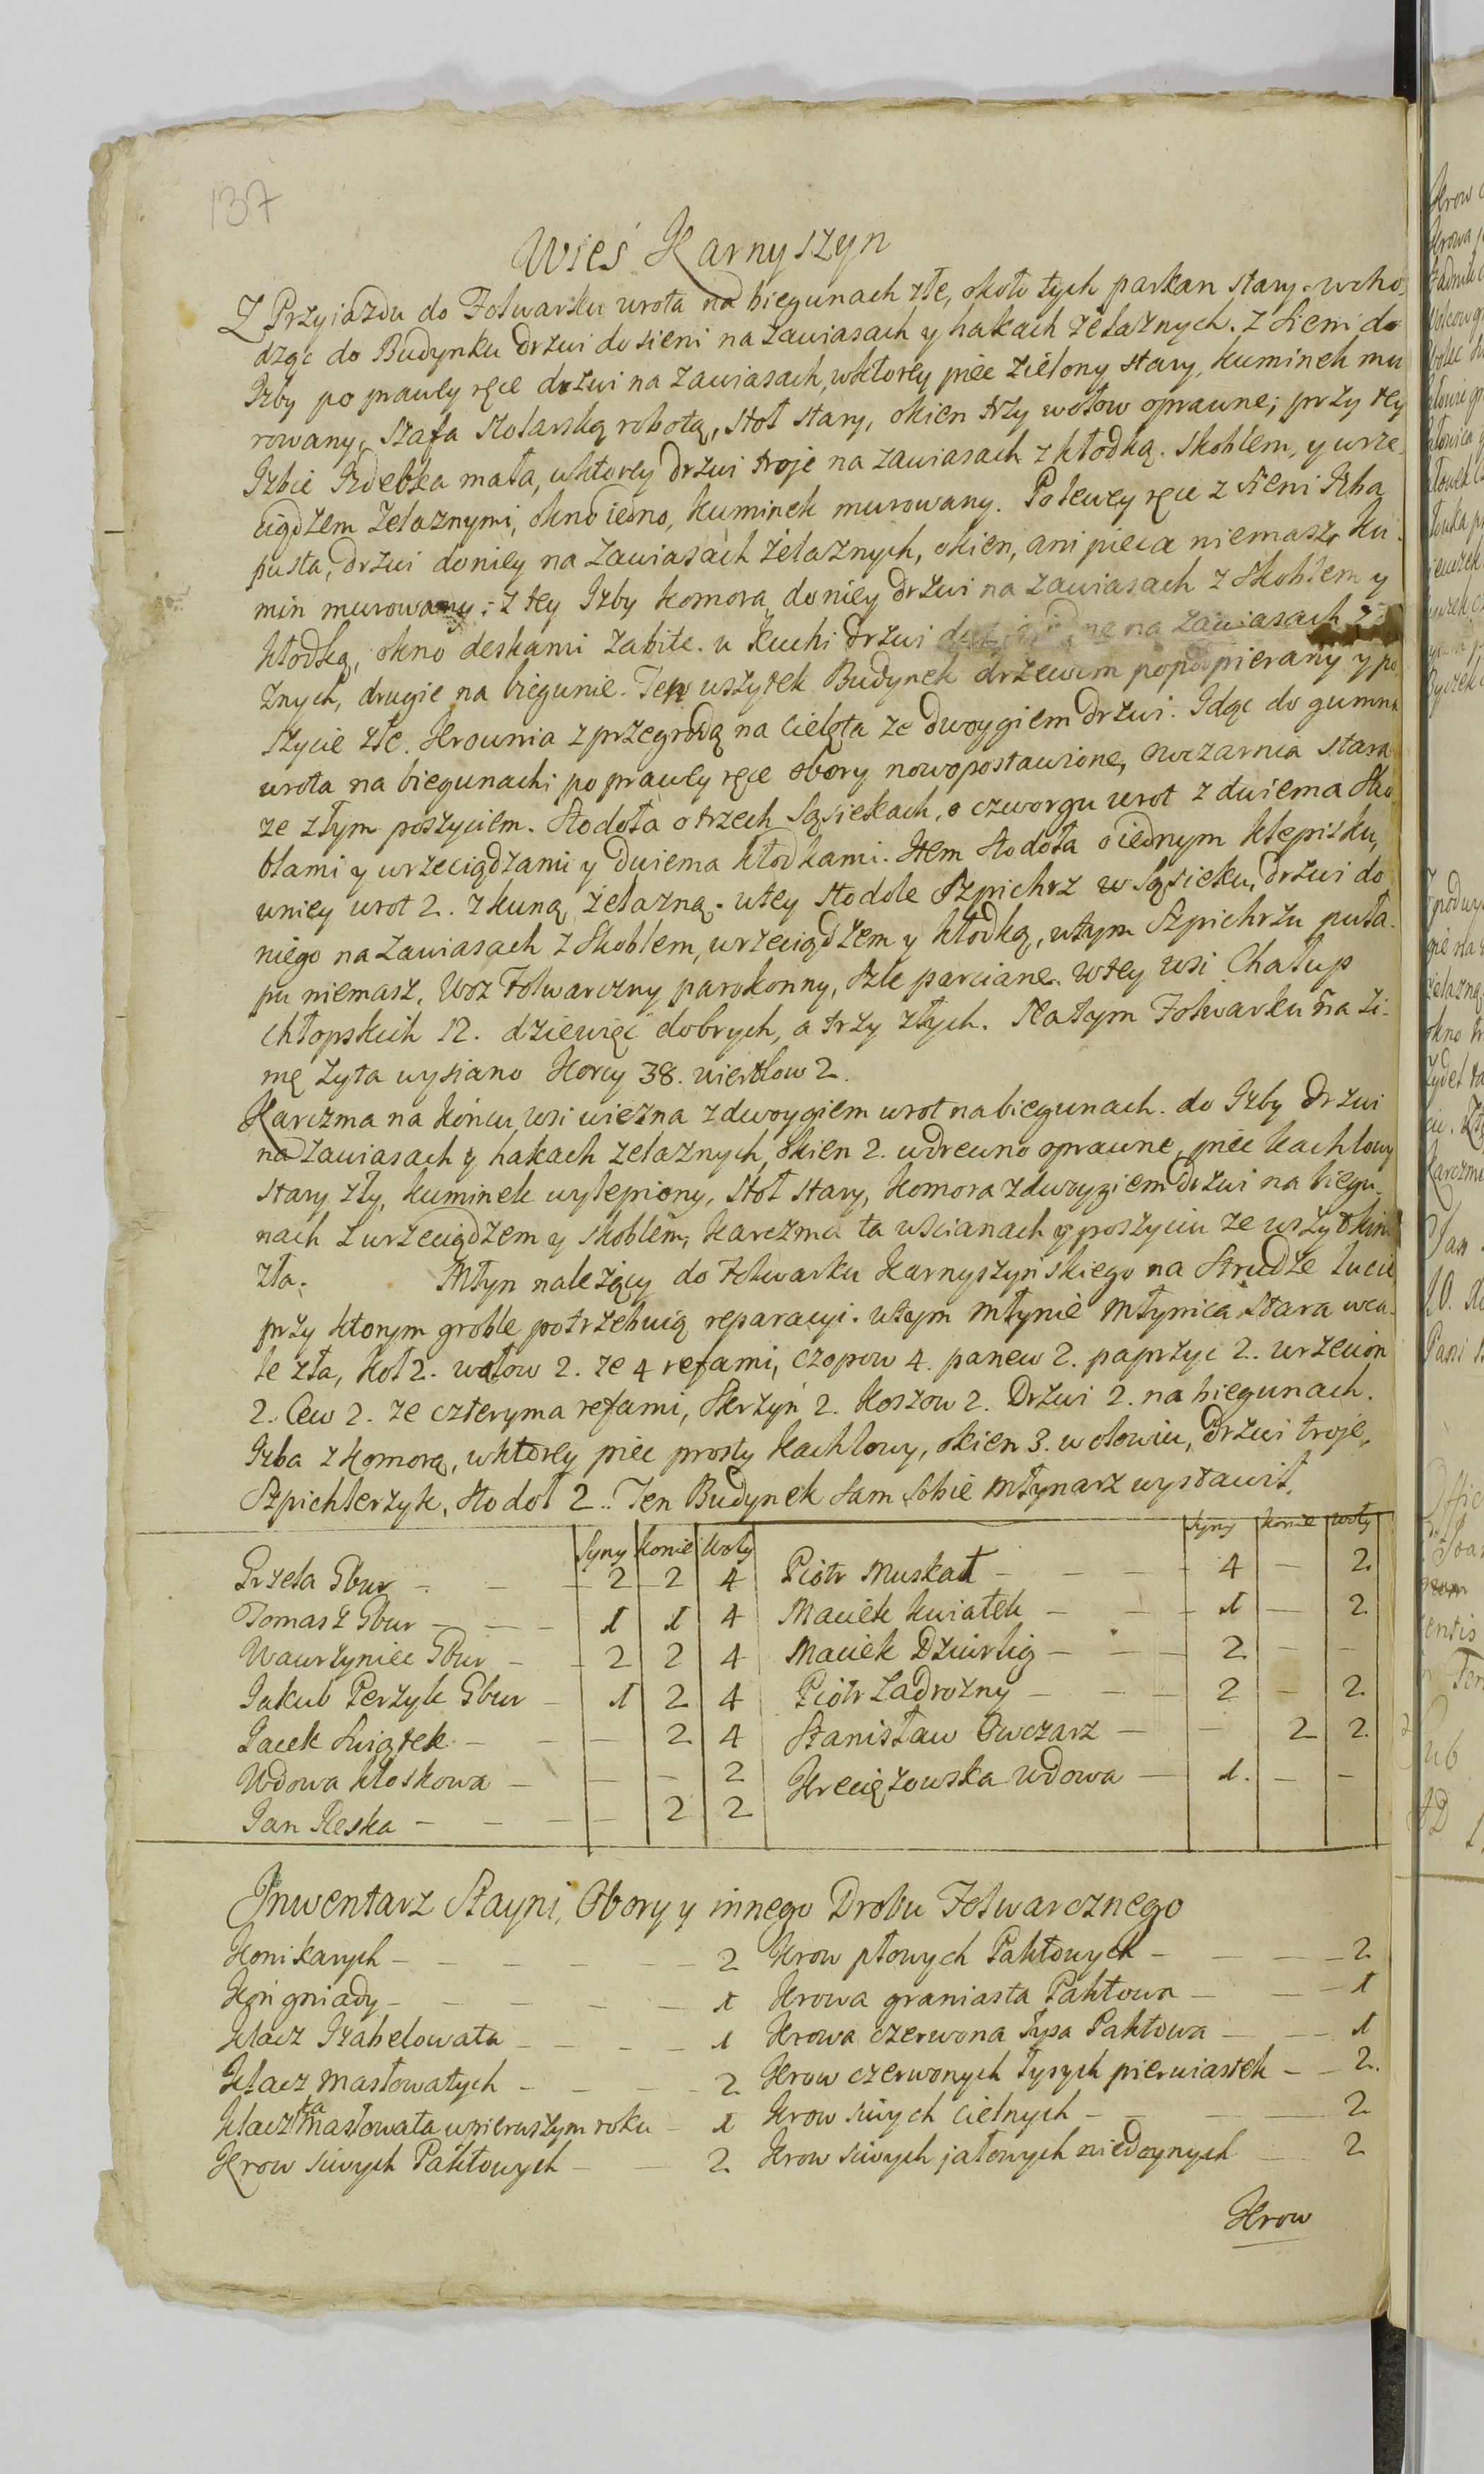 137
Wieś Karnyszyn
Z Przyiazdu do Folwarku wrota na biegunach złe, około tych parkan stary. wcho-
dząc do Budynku drzwi do sieni na zawiasach y hakach żelaznych. z sieni do
Izby po prawey ręce drzwi na zawiasach, w ktorey piec zielony stary, kuminek mu
rowany, szafa stolarską robotą, stoł stary, okien trzy w ołow oprawne; przy tey
Izbie Izdebka mała, w ktorey drzwi troje na zawiasach z kłodką. skoblem, y wrze-
ciądzem żelaznymi, okno iedno, kuminek murowany. Po lewey ręce z sieni Izba
pusta, drzwi do niey na zawiasach żelaznych, okien, ani pieca niemasz, ku-
min murowany; z tey Izby komora, do niey drzwi na zawiasach z skoblem y
kłodką, okno deskami zabite. u kuchi drzwi na zawiasach
znych, drugie na biegunie. Ten wszytek Budynek drzewem popodpierany y po
szycie złe. Krownia z przegrodą na cielęta ze dwoygiem drzwi. Idąc do gumna
wrota na biegunach; po prawey ręce obory nowopostawione, owczarnia stara
ze złym poszyciem. Stodoła o trzech sąsiekach, o czworgu wrot z dwiema sko
blami y wrzeciądzami y dwiema kłodkami. Item stodoła o iednym klepisku,
u niey wrot 2. z kuną żelazną. w tey stodole Szpichrz w sąsieku, drzwi do
niego na zawiasach z skoblem, wrzeciądzem y kłodką, w tym Szpichrzu puła-
pu niemasz. Woz Folwarczny parokonny, szle parciane. W tey wsi Chałup
chłopskich 12. dziewięć dobrych, a trzy złych. Na tym Folwarku na zi-
mę żyta wysiano Korcy 38. wiertlow 2.
Karczma na końcu wsi wiezna z dwoygiem wrot na biegunach. do Izby drzwi
na zawiasach y hakach zelaznych, okien 2. w drewno oprawne, piec kachlowy
stary zły, kuminek wylepiony, stoł stary, komora z dwoygiem drzwi na biegu-
nach z wrzeciądzem y skoblem, karczma ta w ścianach y poszyciu ze wszytkim
zła. Młyn należący do Folwarku Karnyszyńskiego na Strudze
przy ktorym groble potrzebuią reparacyi. w tym młynie młynica stara wca-
le zła, koł 2. wałow 2. ze 4 refami, czopow 4. panew 2. paprzyc 2. wrzecion
2. Cew 2. ze czteryma refami, skrzyń 2. koszow 2. Drzwi 2. na biegunach.
Izba z komorą, w ktorey piec prosty kachlowy, okien 3. w ołowiu, drzwi troje,
Szpichlerzyk, stodoł 2.. Ten Budynek sam sobie młynarz wystawił.
Syny Konie Woły Syny Konie Woły
Grzela Gbur - - - 2 2 4 Piotr Muskat - - - 4 - 2
Tomasz Gbur - - - 1 1 4 Maciek Kwiatek - - - 1 - 2
Wawrzyniec Gbur - - 2 2 4 Maciek Dzwirlig - - - 2 - -
Jakub Perzyk Gbur - 1 2 4 Piotr Zadrozny - - - 2 - 2
Jacek Swiątek - - - 2 4 Stanisław Owczarz - - 2 2
Wdowa Kłoskowa - - - 2 Kreciszowska wdowa - 1. - -
Jan Reska - - - - 2 2
Inwentarz Stayni, Obory y innego Drobu Folwarcznego
Koni karych - - - - - - 2 Krow płowych Pakłowych - - - - 2
Koń gniady - - - - - - 1 Krowa graniasta Pakłowa - - - 1
Klacz Izabelowata - - - - 1 Krowa czerwona łysa Pakłowa - - - 1
Klacz masłowatych - - - - 2 Krow czerwonych łysych pierwiastek - - 2.
Klaczka masłowata w pierwszym roku - 1 Krow siwych cielnych - - - 2
Krow siwych Pakłowych - - 2 Krow siwych jałowych niedoynych - - 2
Krow